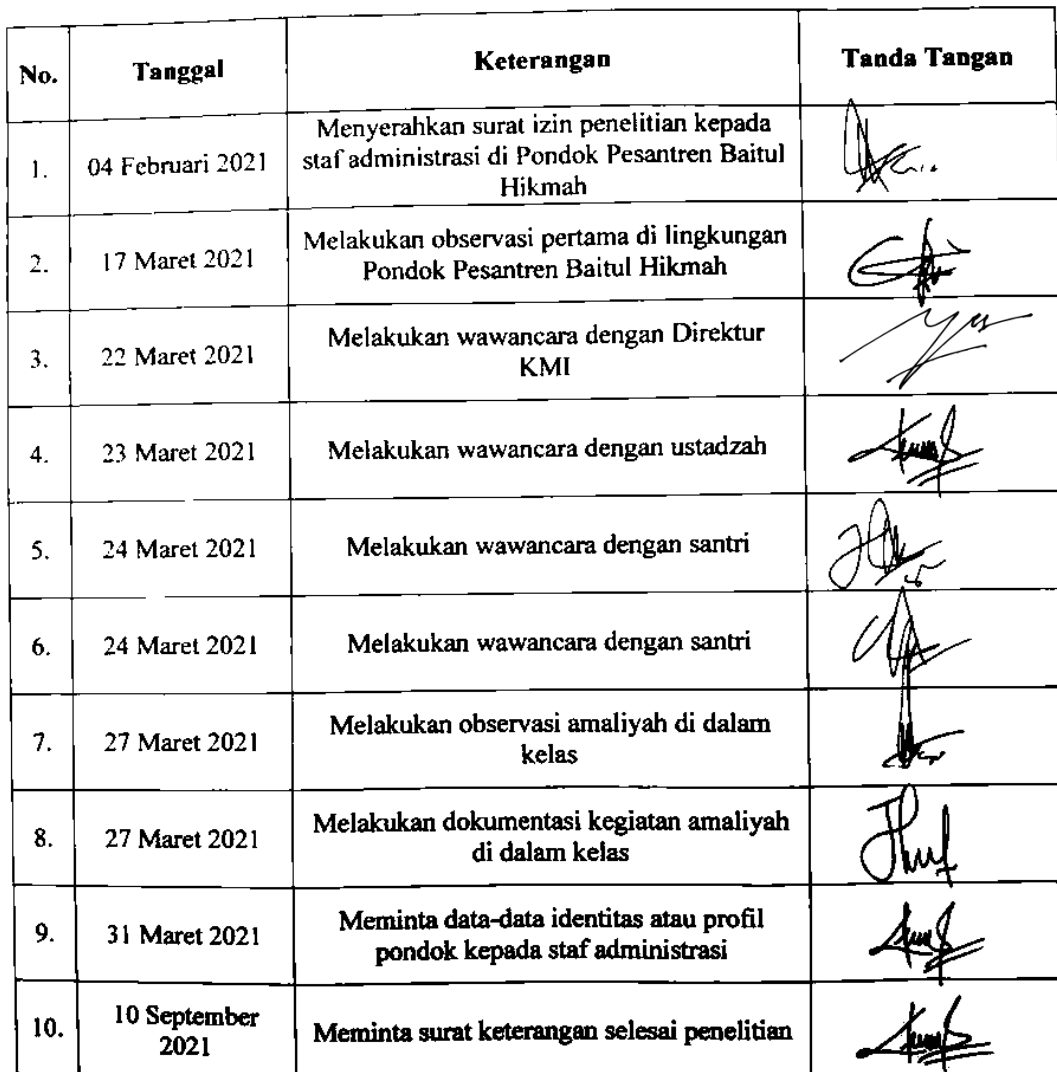 No. Tanggal Keterangan Tanda Tangan
1. 04 Februari 2021 Menyerahkan surat izin penelitian kepada
staf administrasi di Pondok Pesantren Baitul
Hikmah
2. 17 Maret 2021 Melakukan observasi pertama di lingkungan
Pondok Pesantren Baitul Hikmah
3. 22 Maret 2021 Melakukan wawancara dengan Direktur
KMI
4. 23 Maret 2021 Melakukan wawancara dengan ustadzah
5. 24 Maret 2021 Melakukan wawancara dengan santri
6. 24 Maret 2021 Melakukan wawancara dengan santri
7. 27 Maret 2021 Melakukan observasi amaliyah di dalam
kelas
8. 27 Maret 2021 Melakukan dokumentasi kegiatan amaliyah
di dalam kelas
9. 31 Maret 2021 Meminta data-data identitas atau profil
pondok kepada staf administrasi
10. 10 September
2021 Meminta surat keterangan selesai penelitian